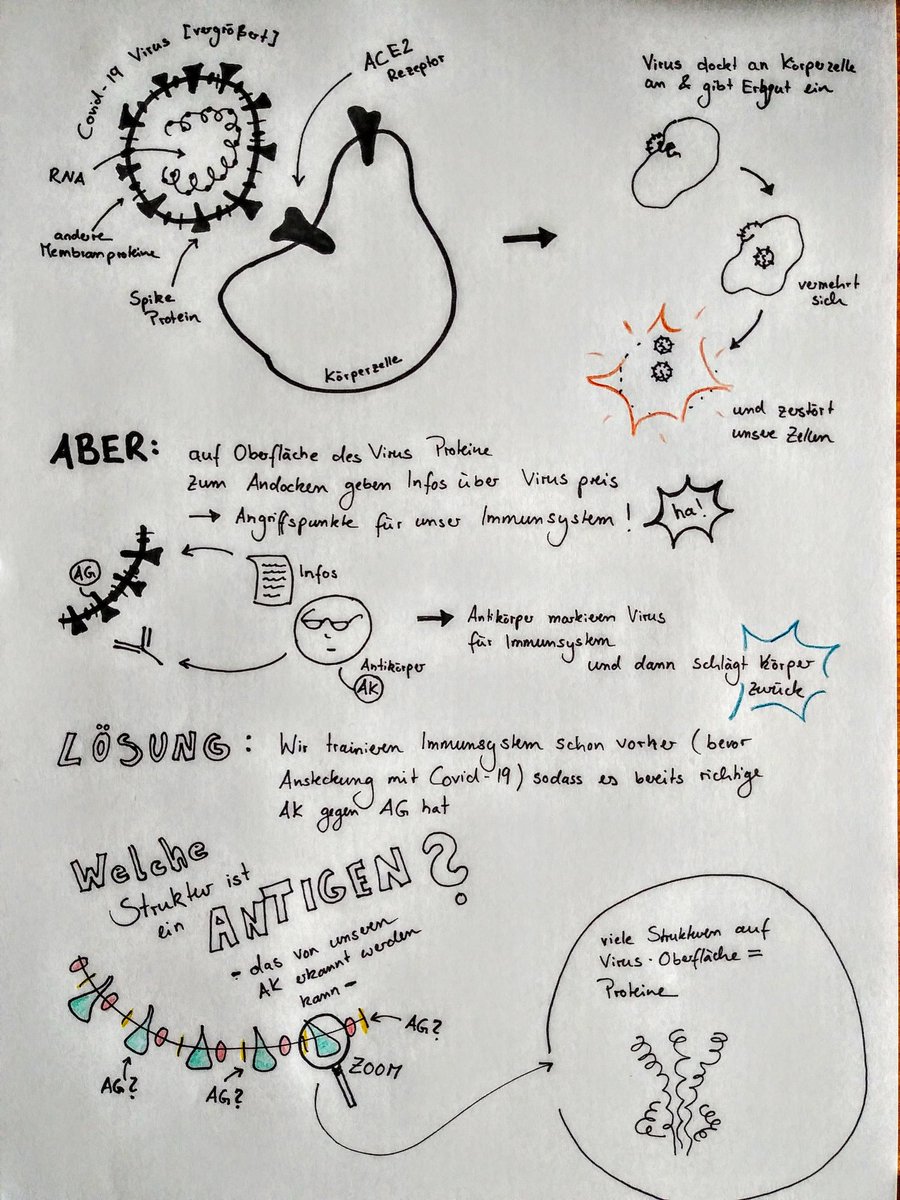 Covid-19 Virus [vergrößert]
ACE2
Rezeptor
RNA
andere
Membranproteine
Spike
Protein
Körperzelle
Virus dockt an Körperzelle
an & gibt Erbgut ein
vermehrt
sich
und zerstört
unsere Zellen
ABER:
auf Oberfläche des Virus Proteine
zum Andocken geben Infos über Virus preis
→ Angriffspunkte für unser Immunsystem!
ha!
AG
Infos
Antikörper
AK
→ Antikörper markieren Virus
für Immunsystem
und dann schlägt Körper
zurück
LÖSUNG:
Wir trainieren Immunsystem schon vorher (bevor
Ansteckung mit Covid-19) sodass es bereits richtige
AK gegen AG hat
Welche
Struktur ist
ein ANTIGEN?
- das von unseren
AK erkannt werden
kann -
AG?
AG?
AG?
ZOOM
viele Strukturen auf
Virus-Oberfläche =
Proteine